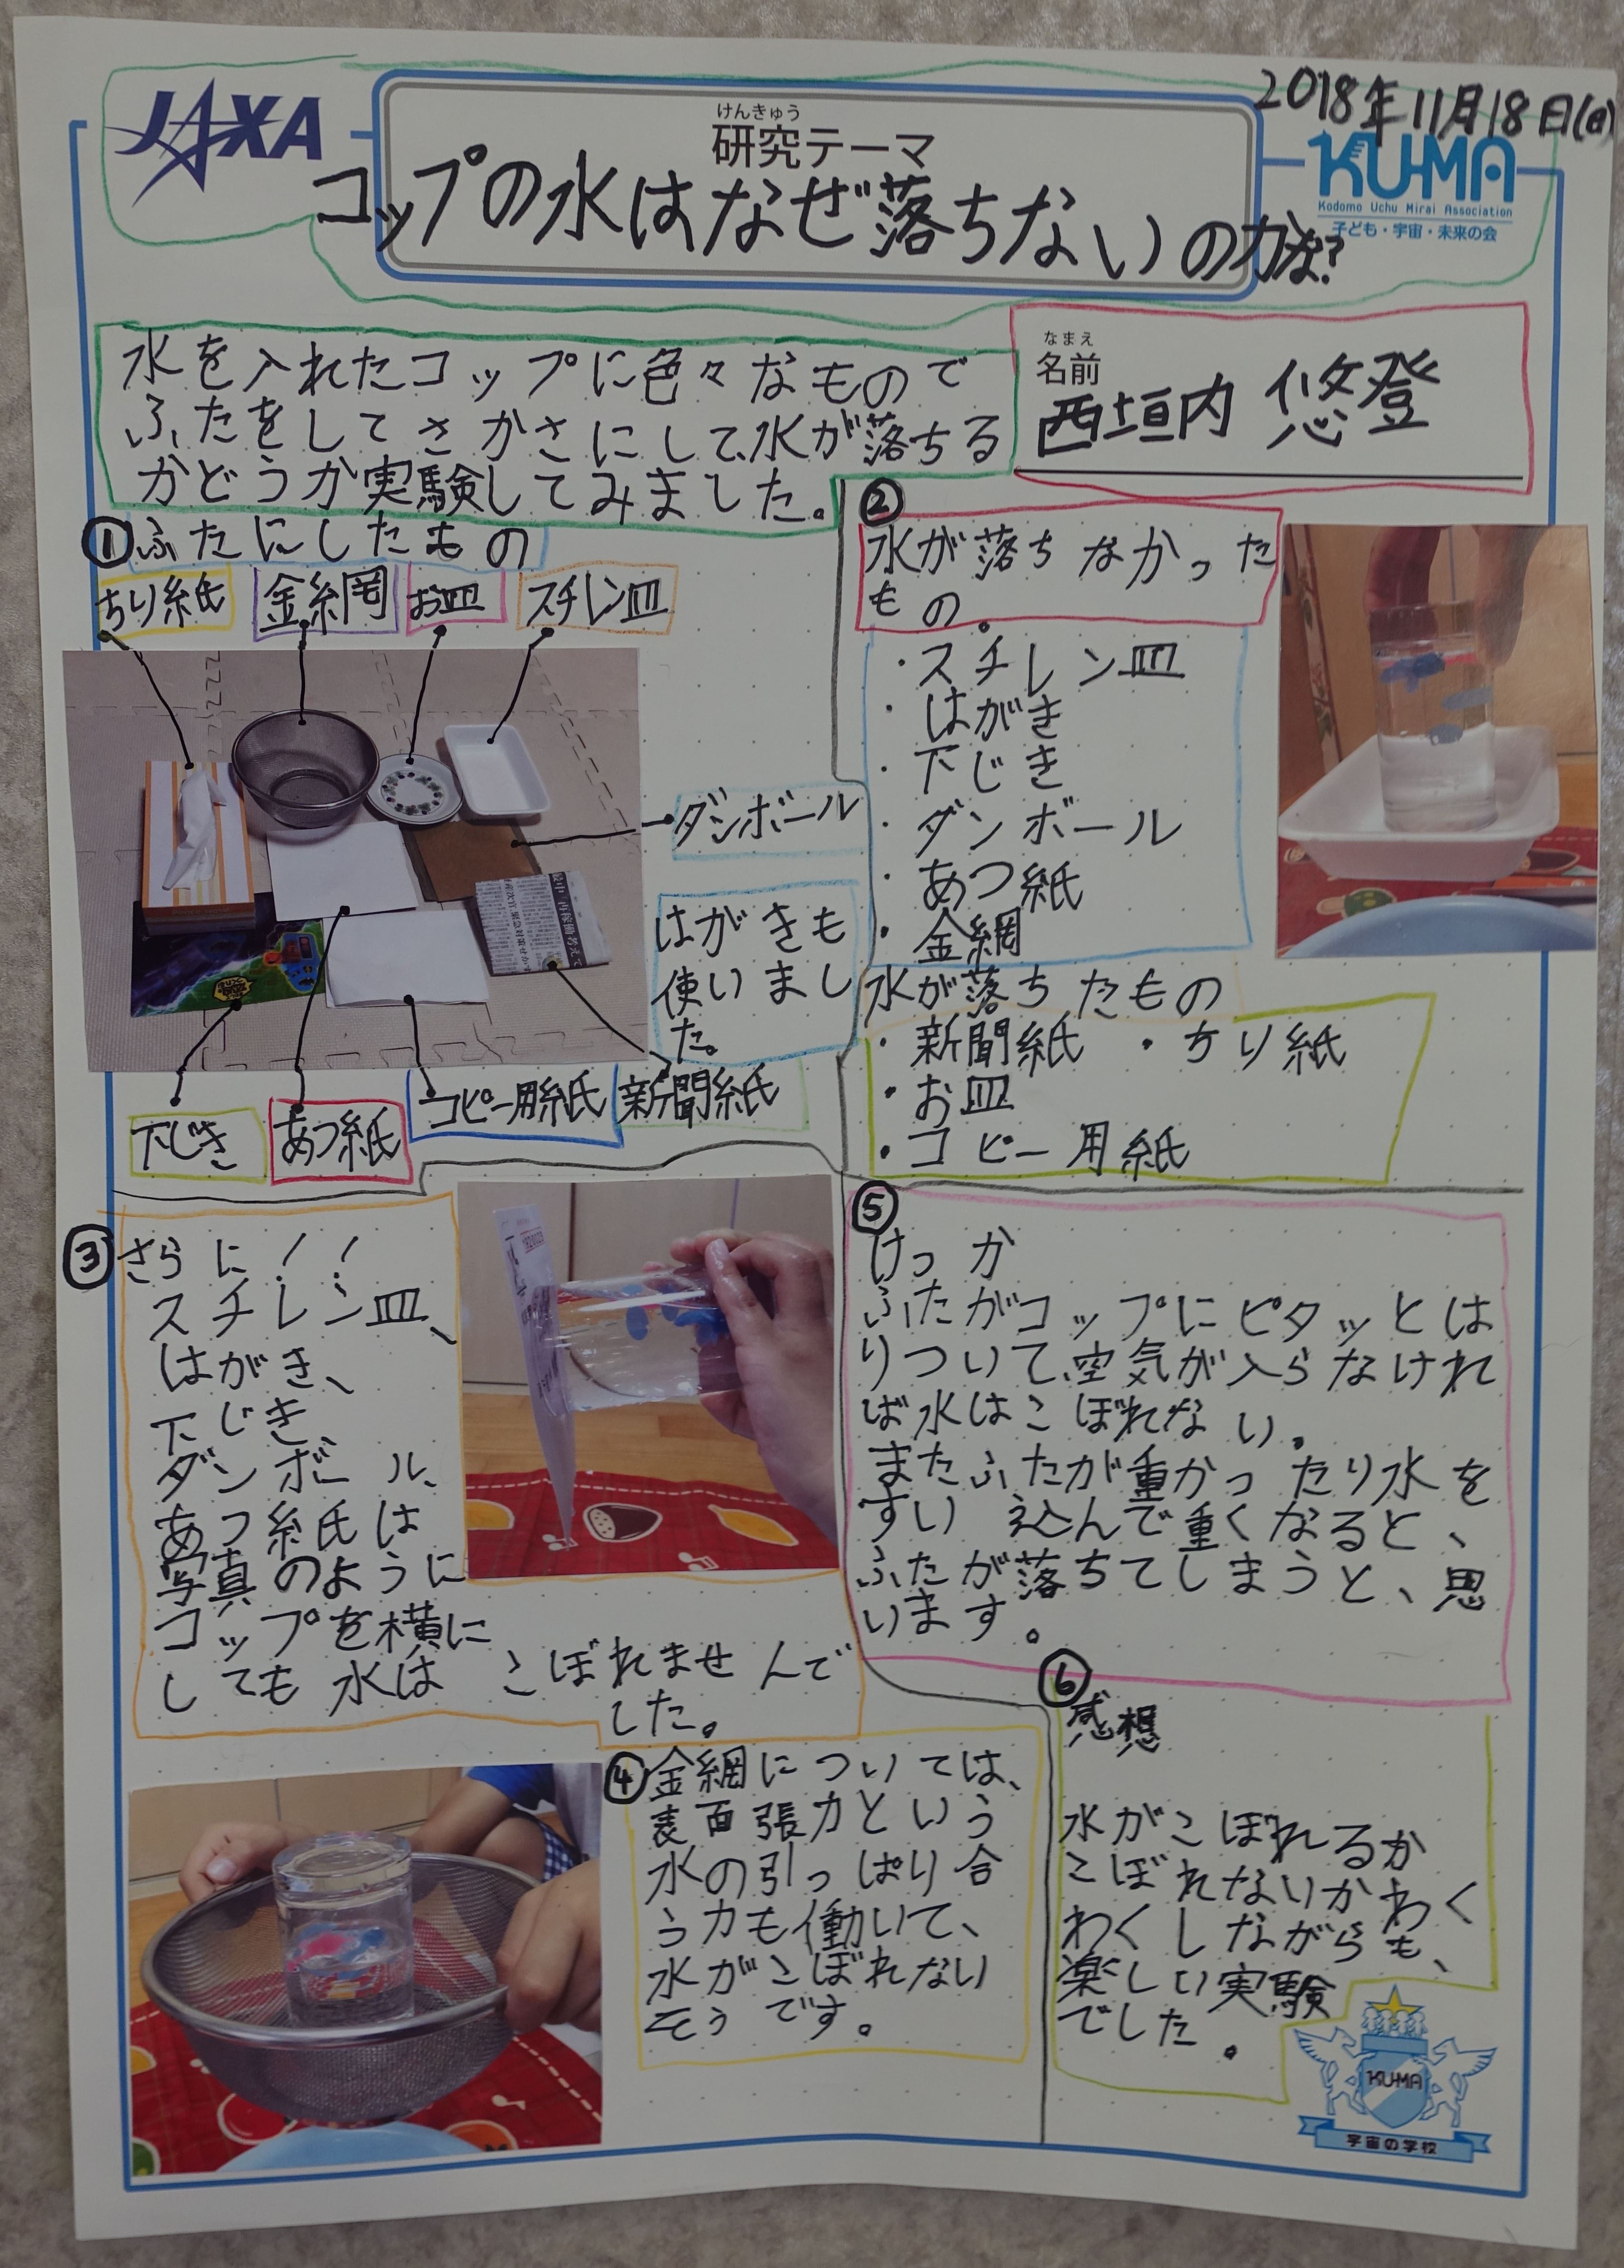 2018年11月18日(日)
JAXA
けんきゅう
研究テーマ
コップの水はなぜ落ちないのかな?
KU-MA
Kodomo Uchu Mirai Association
子ども・宇宙・未来の会
水を入れたコップに色々なもので
ふたをしてさかさにして、水が落ちる
かどうか実験してみました。
なまえ
名前
西垣内 悠登
①ふたにしたもの
ちり紙
金網
お皿
スチレン皿
ダンボール
はがきも
使いまし
た。
下じき
あつ紙
コピー用紙
新聞紙
②
水が落ちなかった
もの。
・スチレン皿
・はがき
・下じき
・ダンボール
・あつ紙
・金網
水が落ちたもの
・新聞紙 ・ちり紙
・お皿
・コピー用紙
③さらに!!
スチレン皿、
はがき、
下じき、
ダンボール、
あつ紙は
写真のように
コップを横に
しても水は こぼれませんで
した。
④金網については、
表面張力という
水の引っぱり合
う力も働いて、
水がこぼれない
そうです。
⑤
けっか
ふたがコップにピタッとは
りついて、空気が入らなけれ
ば水はこぼれない。
またふたが重かったり水を
すい込んで重くなると、
ふたが落ちてしまうと、思
います。
⑥
感想
水がこぼれるか
こぼれないかわく
わくしながらも、
楽しい実験
でした。
KU-MA
宇宙の学校